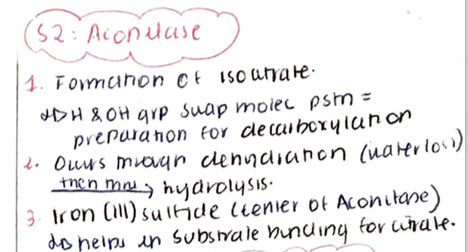 S2: Aconitase
1. Formation of isocitrate.
↳ H & OH grp swap molec pstn =
preparation for decarboxylation
2. Occurs through dehydration (water loss)
then thru → hydrolysis.
3. Iron (III) sulfide (center of Aconitase)
↳ helps in substrate binding for citrate.